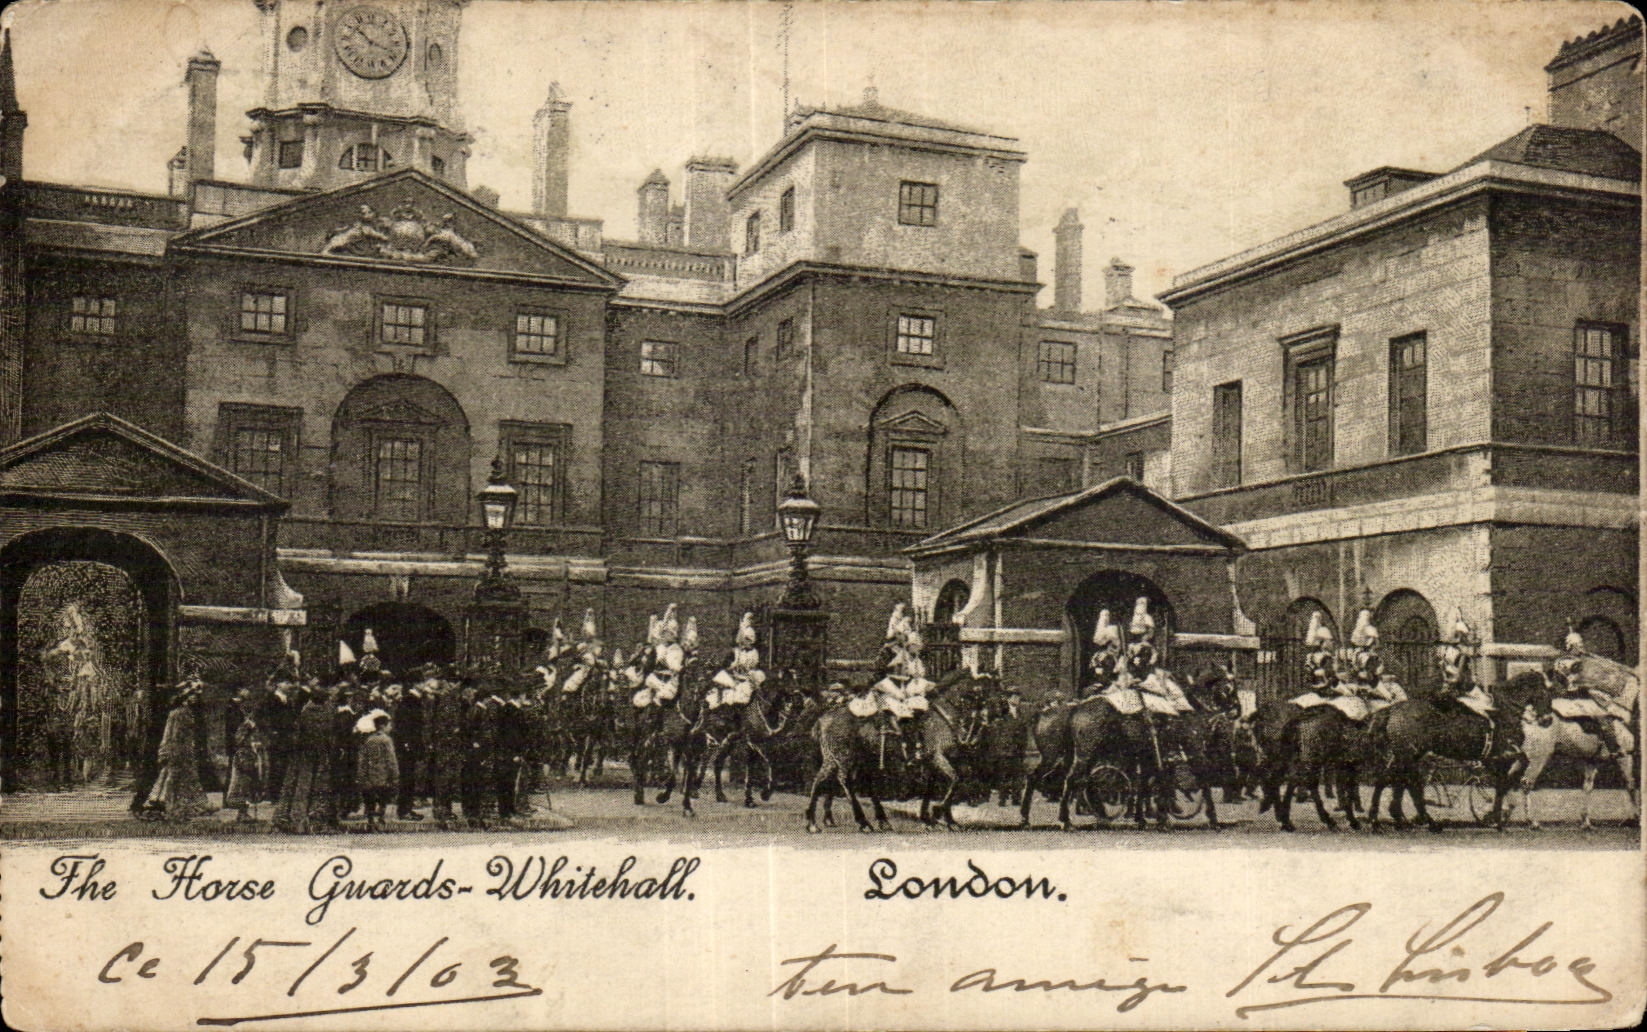 The Horse Guards-Whitehall. London.
Ce 15/3/03
ton amigo